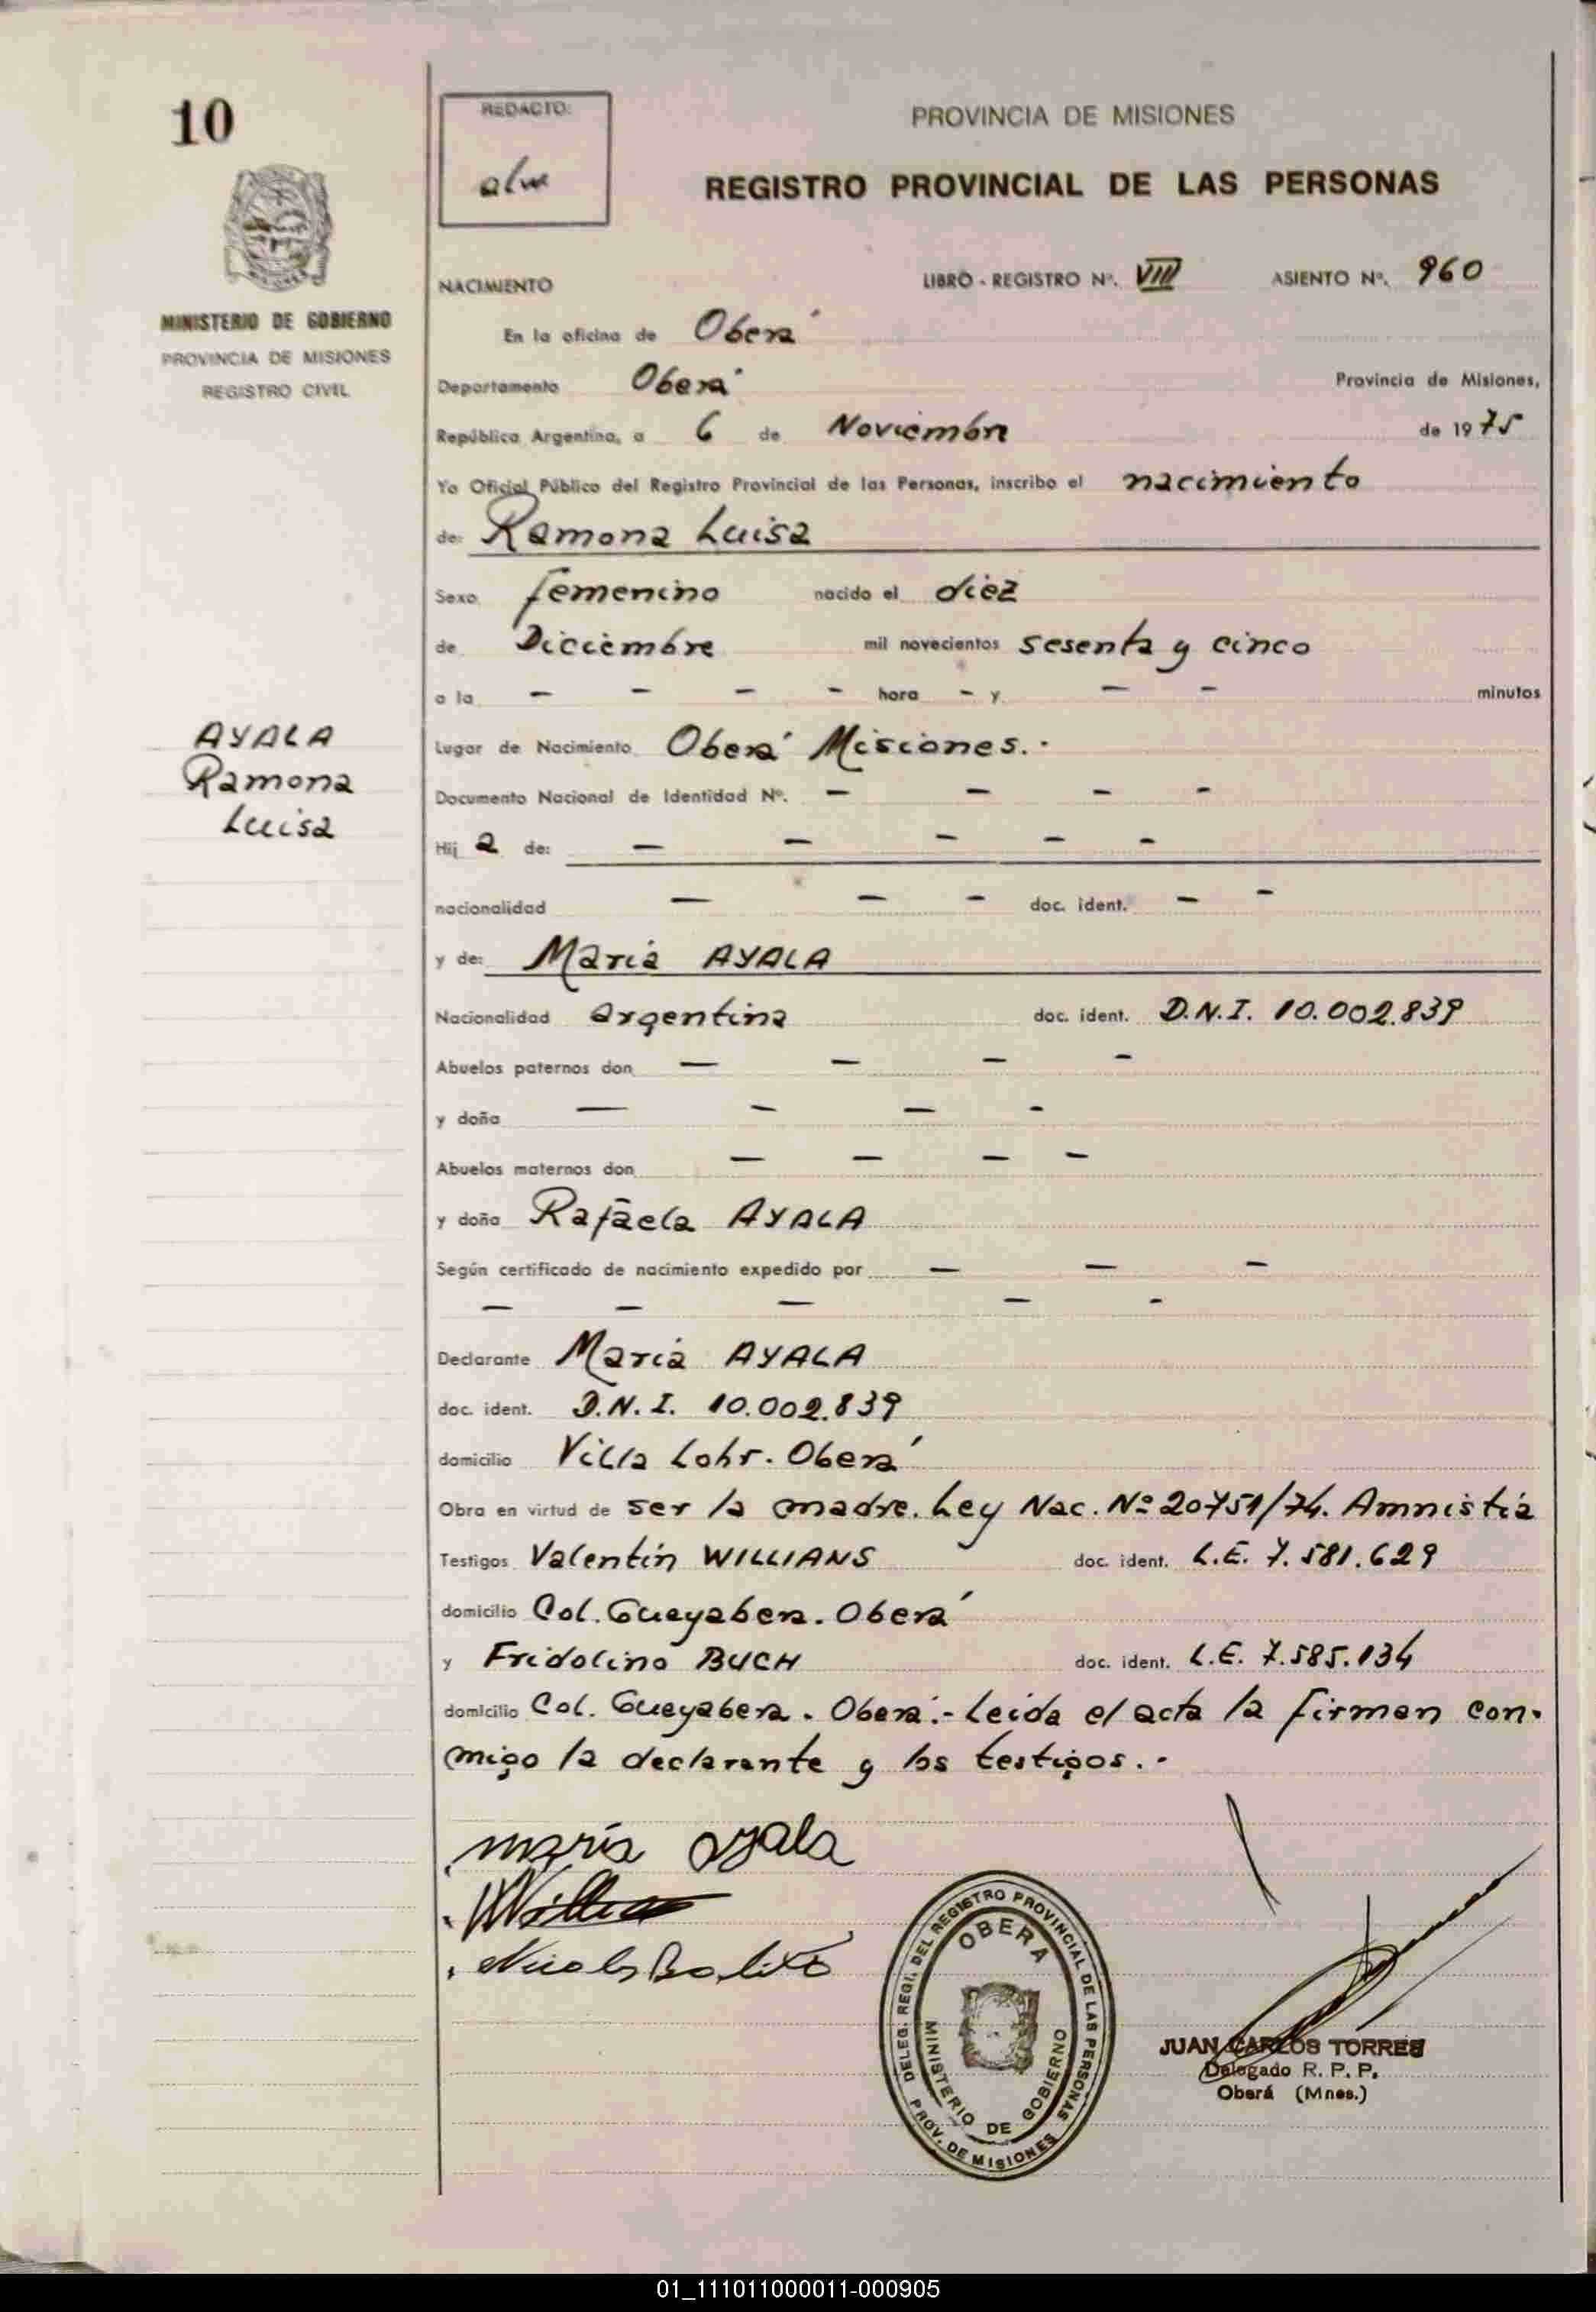 10
REDACTO:
alm
PROVINCIA DE MISIONES
REGISTRO PROVINCIAL DE LAS PERSONAS
MINISTERIO DE GOBIERNO
PROVINCIA DE MISIONES
REGISTRO CIVIL
NACIMIENTO LIBRO - REGISTRO Nº. VIII ASIENTO Nº. 960
En la oficina de Oberá
Departamento Oberá Provincia de Misiones,
República Argentina, a 6 de Noviembre de 1975
Yo Oficial Público del Registro Provincial de las Personas, inscribo el nacimiento
de: Ramona Luisa
Sexo femenino nacido el diez
de Diciembre mil novecientos sesenta y cinco
a la — — — - hora - y — - minutos
AYALA
Ramona
Luisa
Lugar de Nacimiento Oberá Misiones.-
Documento Nacional de Identidad Nº. — — — -
Hij a de: — — — — -
nacionalidad — — - doc. ident. — -
y de: María AYALA
Nacionalidad argentina doc. ident. D.N.I. 10.002.839
Abuelos paternos don — — — -
y doña — — — -
Abuelos maternos don — — — -
y doña Rafaela AYALA
Según certificado de nacimiento expedido por — — —
— — — — -
Declarante María AYALA
doc. ident. D.N.I. 10.002.839
domicilio Villa Lohr. Oberá
Obra en virtud de ser la madre. Ley Nac. Nº 20751/74. Amnistía
Testigos Valentín WILLIANS doc. ident. L.E. 7.581.629
domicilio Col. Guayabera. Oberá
y Fridolino BUCH doc. ident. L.E. 7.585.134
domicilio Col. Guayabera. Oberá.- Leída el acta la firman con-
migo la declarante y los testigos.-
maría ayala
DELEG. REGI. DEL REGISTRO PROVINCIAL DE LAS PERSONAS
OBERA
MINISTERIO DE GOBIERNO
PROV. DE MISIONES
JUAN CARLOS TORRES
Delegado R. P. P.
Oberá (Mnes.)
01_111011000011-000905